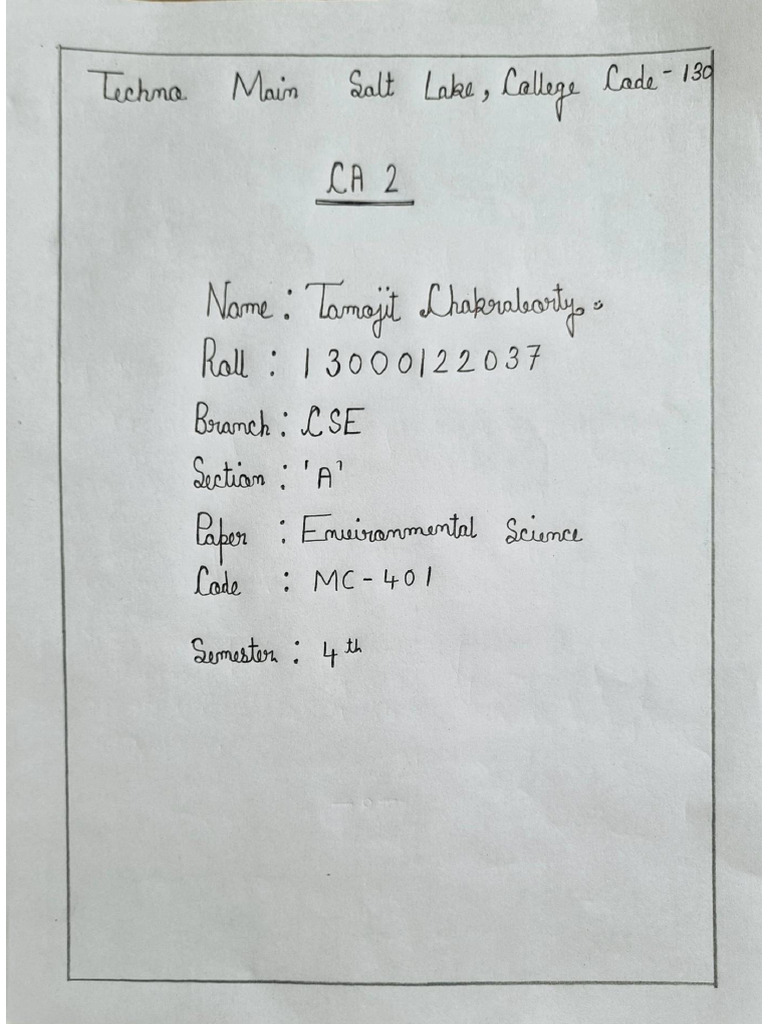 Techno Main Salt Lake, College Code - 130
CA 2
Name : Tamojit Chakraborty.
Roll : 13000122037
Branch : CSE
Section : 'A'
Paper : Environmental Science
Code : MC-401
Semester : 4th